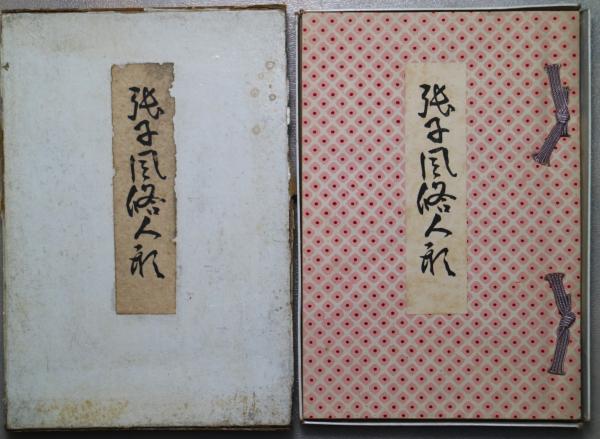 張子風俗人形
張子風俗人形